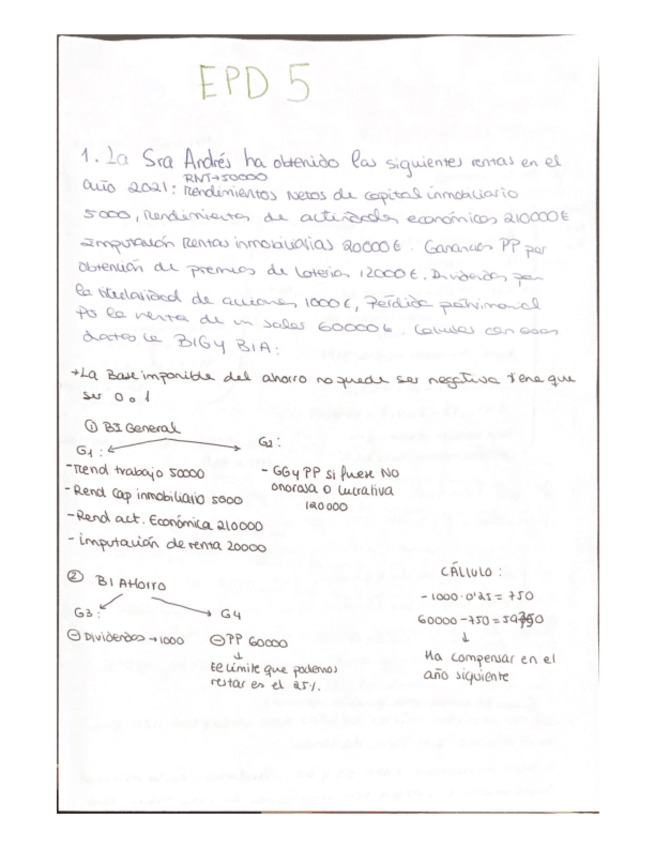 EPD 5
1. La Sra Andrés ha obtenido las siguientes rentas en el
RNT→50000
año 2021: Rendimientos Netos de capital inmobiliario
5000, Rendimientos de actividades económicas 210000€
Imputación Rentas inmobiliarias 20000€. Ganancias PP por
obtención de premios de loteria 12000€. Dividendos por
la titularidad de acciones 1000€, Pérdida patrimonial
por la venta de un solar 60000€. Calcular con esos
datos la BIG y BIA:
→La Base imponible del ahorro no puede ser negativa tiene que
ser 0 o 1
① BI General
G1: G2:
-Rend trabajo 50000
- Rend Cap inmobiliario 5000
-Rend act. Económica 210000
- imputación de renta 20000
- GG y PP si fuere NO
onorosa o lucrativa
120000
② BI Ahorro
G3: G4
⊖ Dividendos → 1000
⊖ PP 60000
↓
límite que podemos
restar es el 25%.
CÁLCULO:
- 1000·0'25 = 750
60000-750=
↓
Ha compensar en el
año siguiente